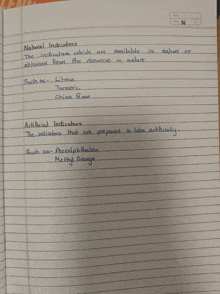 Natural Indicators
The indicators which are available in nature or
obtained from the resources in nature.
Such as:- Litmus
Turmeric
China Rose
Artificial Indicators
The indicators that are prepared in labs artificially.
Such as:- 
Methyl Orange